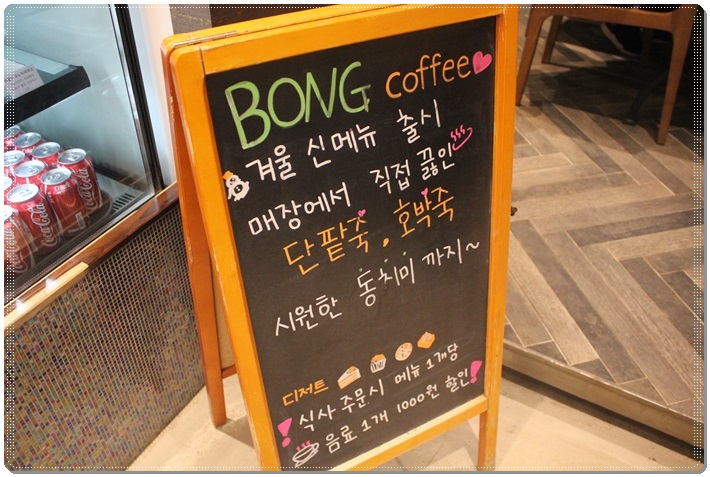 BONG coffee
겨울 신메뉴 출시
매장에서 직접 끓인
단팥죽, 호박죽
시원한 동치미 까지~
디저트
! 식사 주문시 메뉴 1개당
음료 1개 1000원 할인!
Coca-Cola